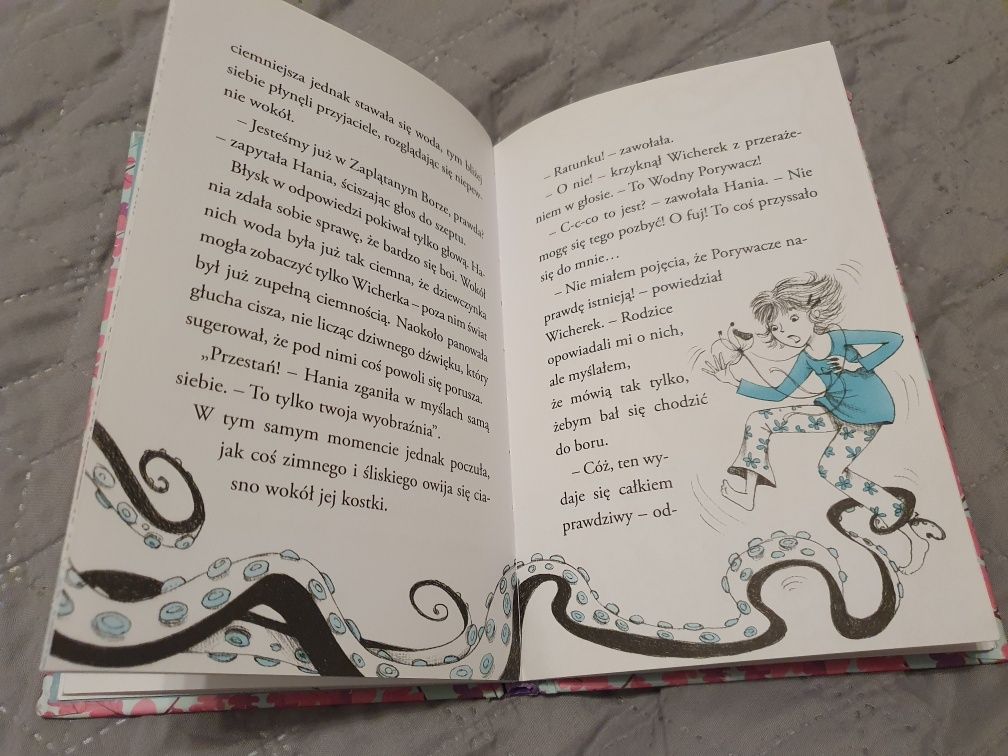 ciemniejsza jednak stawała się woda, tym bliżej
siebie płynęli przyjaciele, rozglądając się niepew-
nie wokół.
– Jesteśmy już w Zaplątanym Borze, prawda?
– zapytała Hania, ściszając głos do szeptu.
Błysk w odpowiedzi pokiwał tylko głową. Ha-
nia zdała sobie sprawę, że bardzo się boi. Wokół
nich woda była już tak ciemna, że dziewczynka
mogła zobaczyć tylko Wicherka – poza nim świat
był już zupełną ciemnością. Naokoło panowała
głucha cisza, nie licząc dziwnego dźwięku, który
sugerował, że pod nimi coś powoli się porusza.
„Przestań! – Hania zganiła w myślach samą
siebie. – To tylko twoja wyobraźnia”.
W tym samym momencie jednak poczuła,
jak coś zimnego i śliskiego owija się cia-
sno wokół jej kostki.
– Ratunku! – zawołała.
– O nie! – krzyknął Wicherek z przeraże-
niem w głosie. – To Wodny Porywacz!
– C-c-co to jest? – zawołała Hania. – Nie
mogę się tego pozbyć! O fuj! To coś przyssało
się do mnie…
– Nie miałem pojęcia, że Porywacze na-
prawdę istnieją! – powiedział
Wicherek. – Rodzice
opowiadali mi o nich,
ale myślałem,
że mówią tak tylko,
żebym bał się chodzić
do boru.
– Cóż, ten wy-
daje się całkiem
prawdziwy – od-